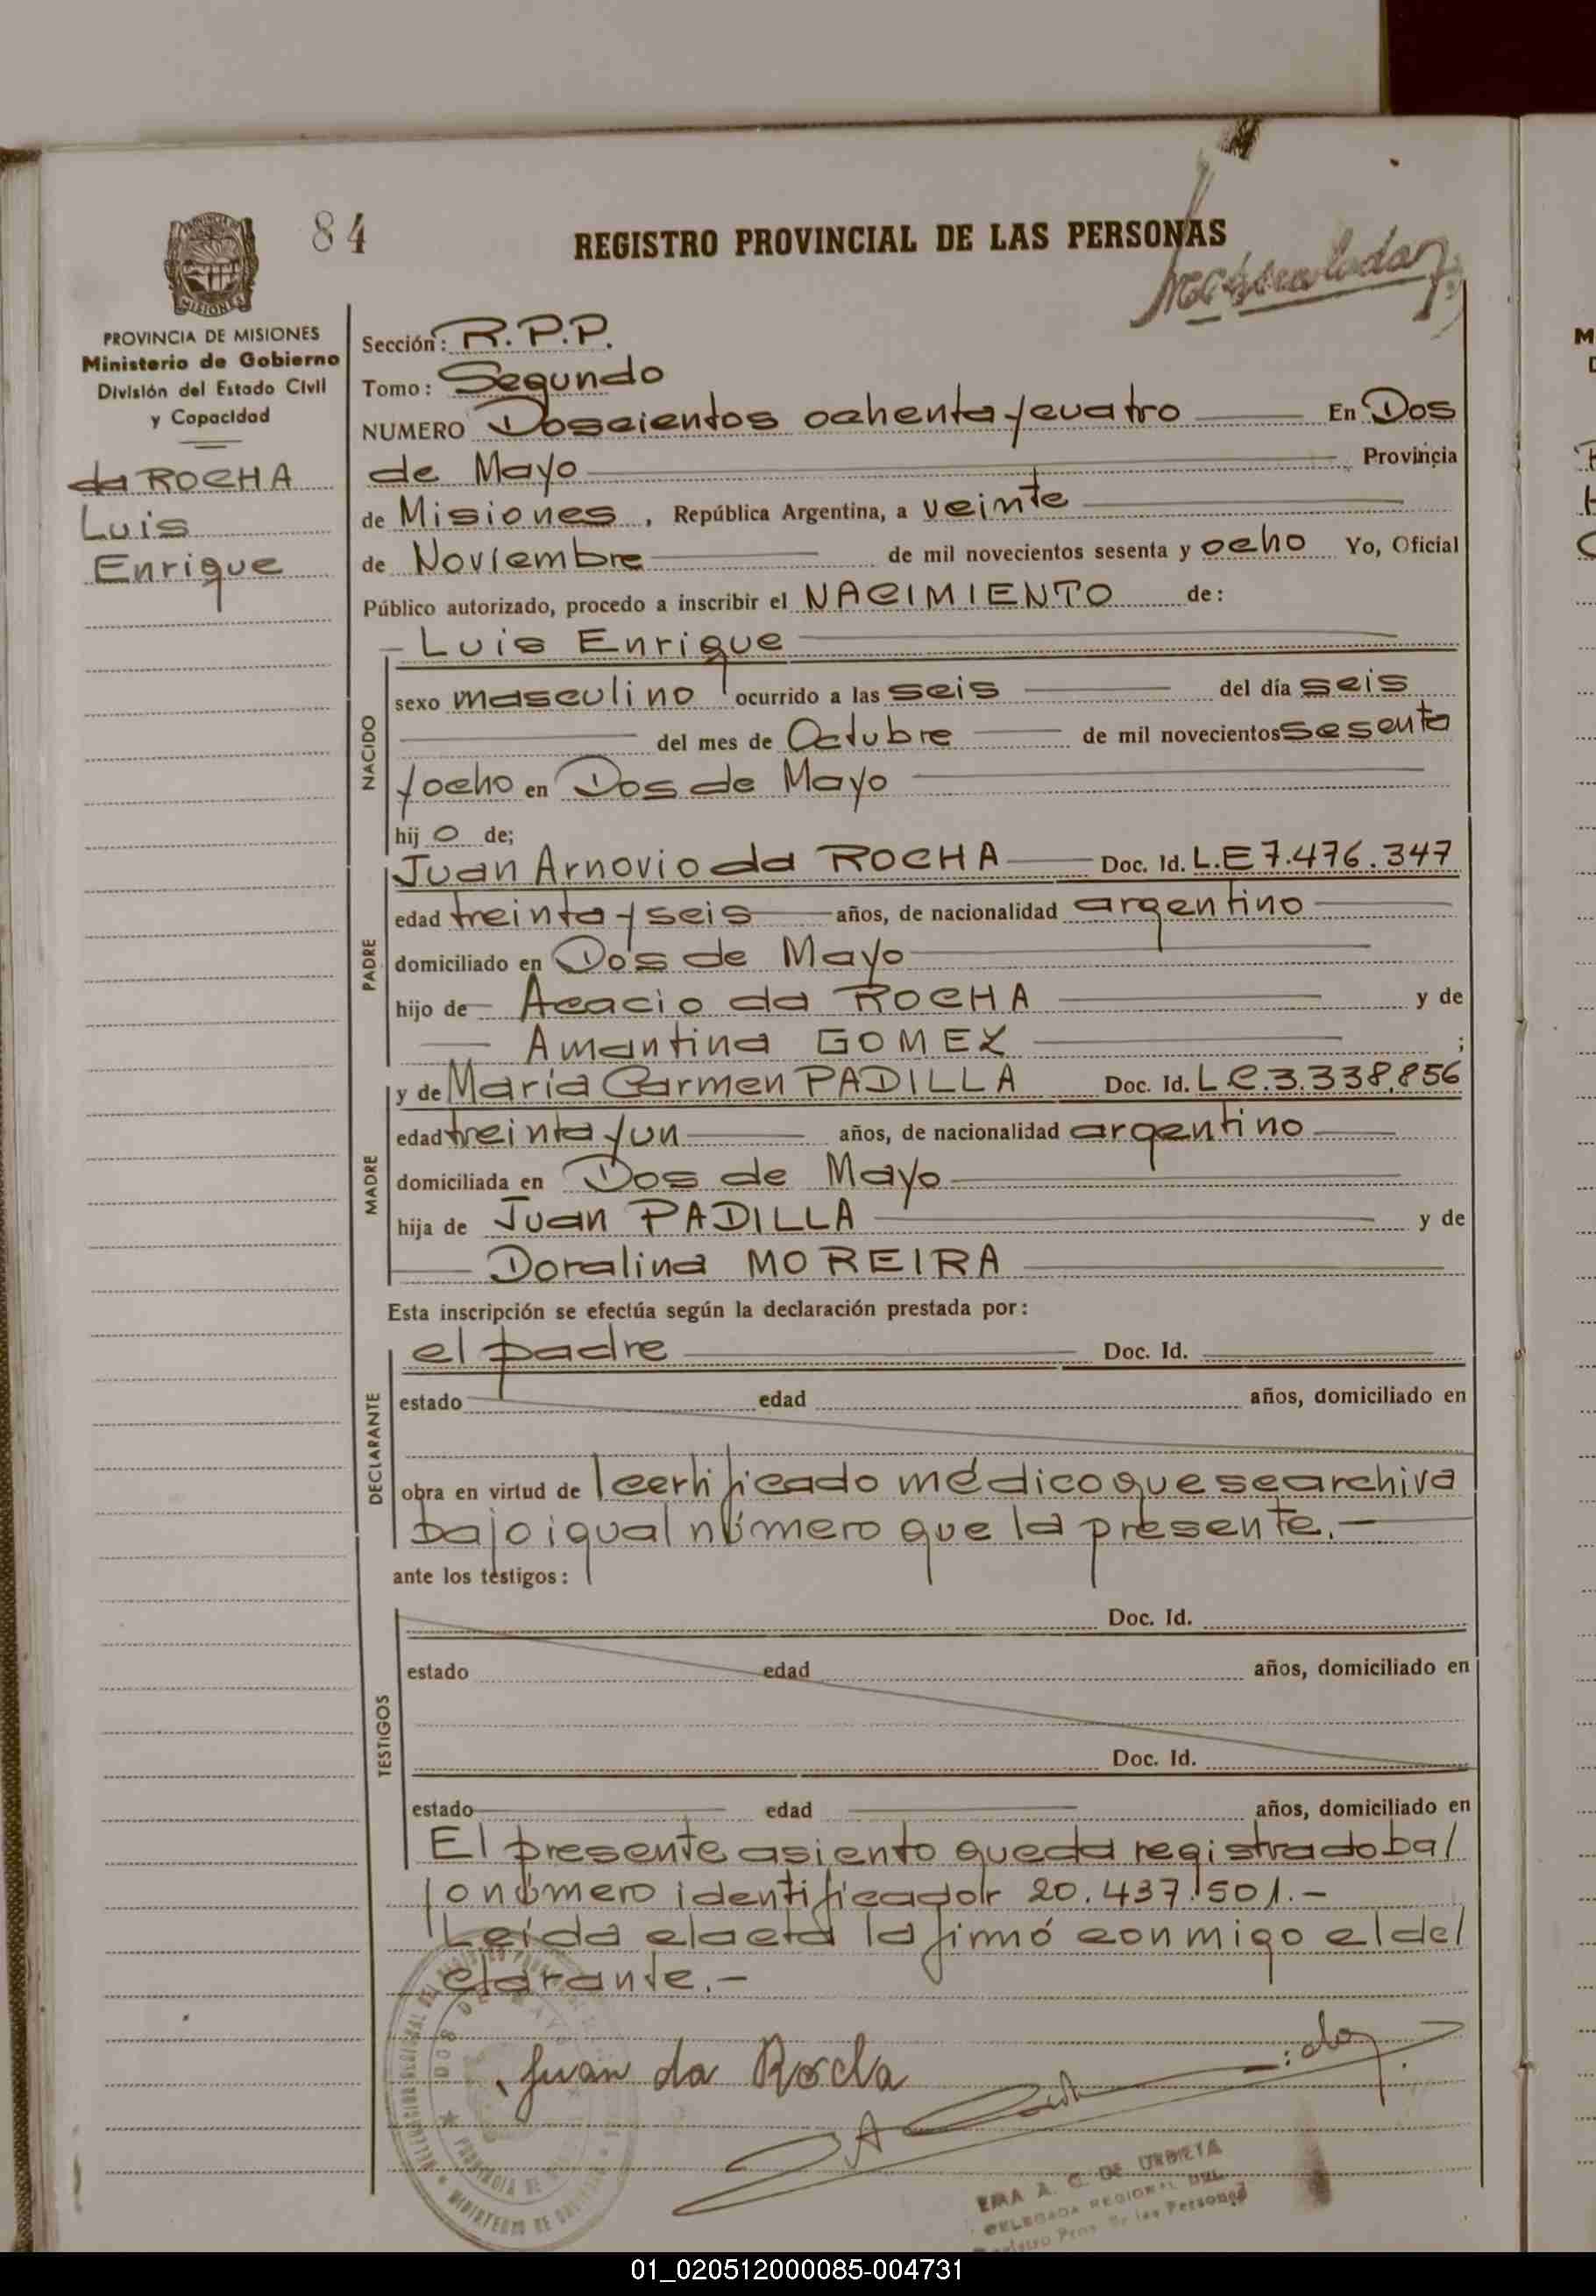 84
REGISTRO PROVINCIAL DE LAS PERSONAS
MISIONES
PROVINCIA DE MISIONES
Ministerio de Gobierno
División del Estado Civil
y Capacidad
da ROCHA
Luis
Enrique
Sección: R.P.P.
Tomo: Segundo
NUMERO Doscientos ochenta y cuatro En Dos
de Mayo Provincia
de Misiones, República Argentina, a veinte
de Noviembre de mil novecientos sesenta y ocho Yo, Oficial
Público autorizado, procedo a inscribir el NACIMIENTO de:
NACIDO
Luis Enrique
sexo masculino ocurrido a las seis del día seis
del mes de Octubre de mil novecientos sesenta
y ocho en Dos de Mayo
hijo de;
PADRE
Juan Arnovio da ROCHA Doc. Id. L.E 7.476.347
edad treinta y seis años, de nacionalidad argentino
domiciliado en Dos de Mayo
hijo de Acacio da ROCHA y de
Amantina GOMEZ ;
MADRE
y de María Carmen PADILLA Doc. Id. L.C.3.338.856
edad treinta y un años, de nacionalidad argentino
domiciliada en Dos de Mayo
hija de Juan PADILLA y de
Doralina MOREIRA
Esta inscripción se efectúa según la declaración prestada por:
DECLARANTE
el padre Doc. Id.
estado edad años, domiciliado en
obra en virtud de l certificado médico que se archiva
bajo igual número que la presente.-
ante los testigos:
TESTIGOS
Doc. Id.
estado edad años, domiciliado en
Doc. Id.
estado edad años, domiciliado en
El presente asiento queda registrado ba/
jo número identificador 20.437.501.-
Leída el acta la firmó conmigo el de/
clarante.-
Juan da Rocha
A. C. DE URBIETA
DELEGADA REGIONAL
de las Personas
DOS DE MAYO
PROVINCIA DE
MINISTERIO DE
01_020512000085-004731